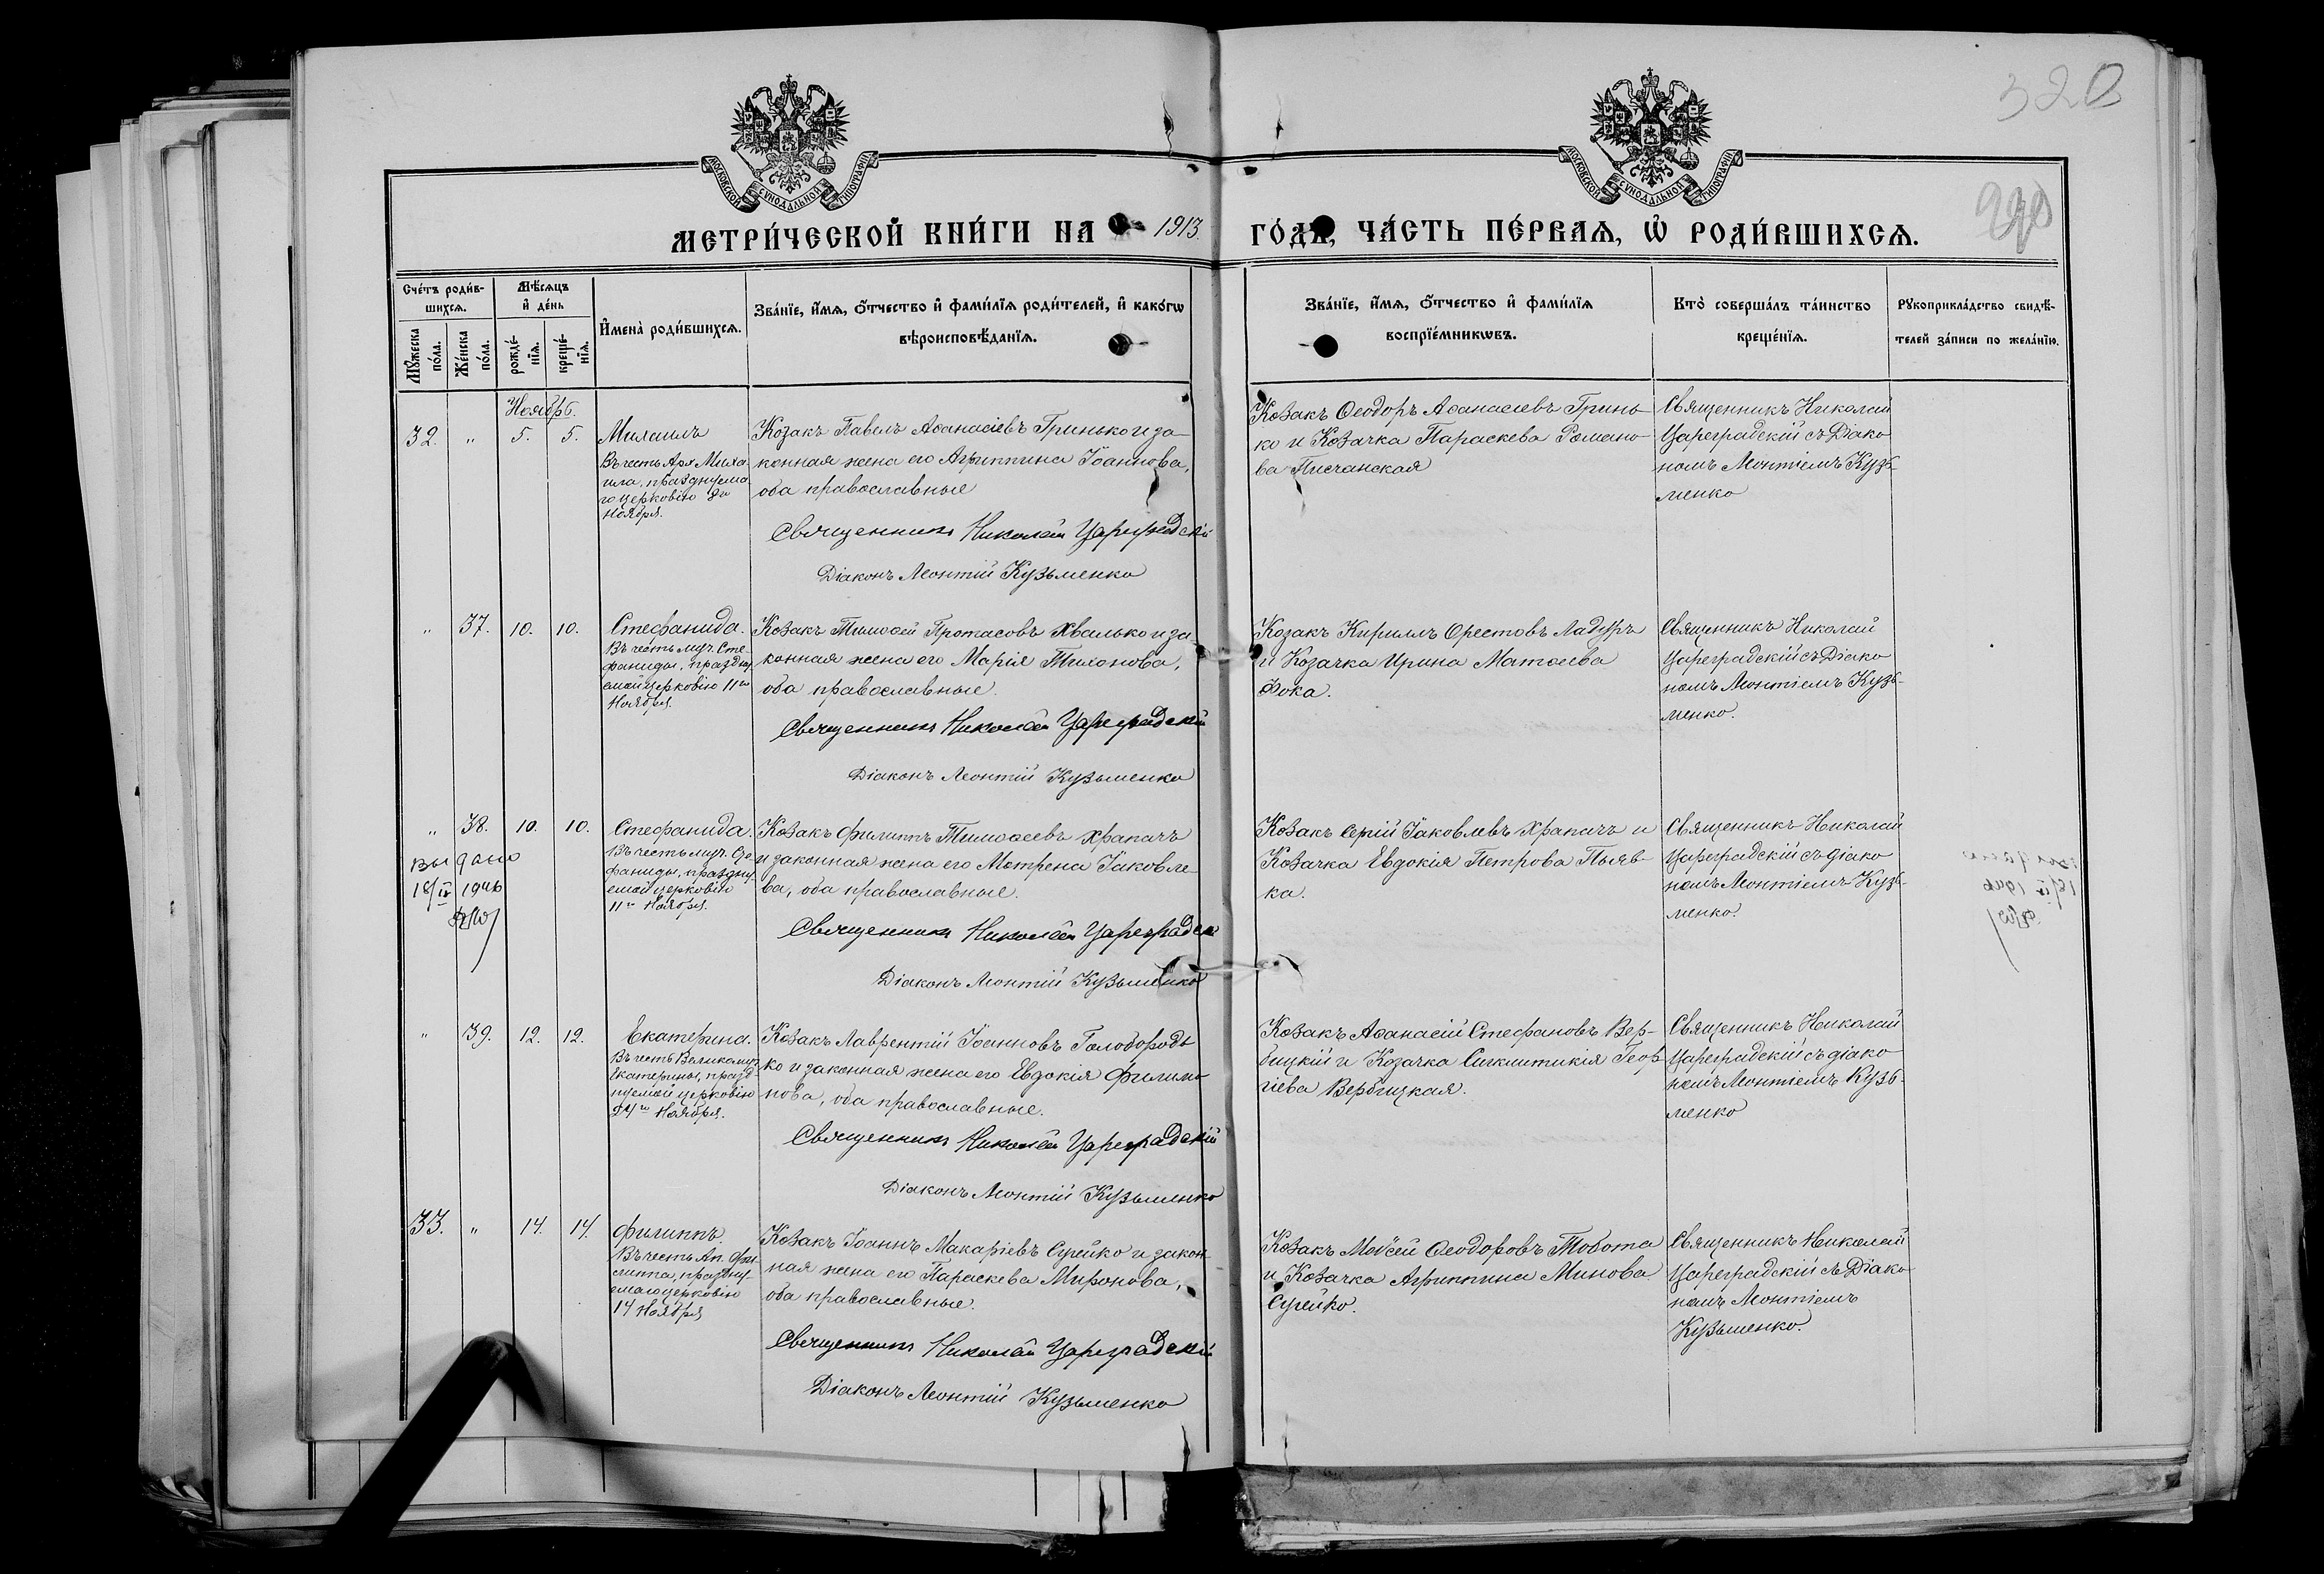 320
МОСКОВСКОЙ СѴНОДАЛЬНОЙ ТИПОГРАФІИ
МОСКОВСКОЙ СѴНОДАЛЬНОЙ ТИПОГРАФІИ
МЕТРИ́ЧЕСКОЙ КНИ́ГИ НА 1913 ГО́ДЪ, ЧА́СТЬ ПЕ́РВАѦ, Ѡ҆ РОДИ́ВШИХСѦ.
Сче́тъ роди́в-
шихсѧ.
Мꙋ́жеска по́ла.
Же́нска по́ла.
Мѣ́сяцъ
и҆ де́нь
рожде́-
нїѧ.
креще́-
нїѧ.
И҆мена̀ роди́вшихсѧ.
Зва́нїе, и҆́мѧ, ѻ҆́тчество и҆ фами́лїѧ роди́телей, и҆ како́гѡ
вѣроисповѣ́данїѧ.
Зва́нїе, и҆́мѧ, ѻ҆́тчество и҆ фами́лїѧ
воспрїе́мникѡвъ.
Кто̀ соверша́лъ та́инство
креще́нїѧ.
Рꙋкоприкла́дство свидѣ́-
телей за́писи по жела́нїю.
Ноябрь.
32. " 5. 5.
Михаилъ
Въ честь Арх. Миха-
ила, празднуема-
го церковію 8го
Ноября.
Козакъ Павелъ Аѳанасіевъ Гринько и за-
конная жена его Агриппина Іоаннова,
оба православные
Священникъ Николай Цареградскій
Діаконъ Леонтій Кузьменко
Козакъ Ѳеодоръ Аѳанасіевъ Гринь-
ко и Козачка Параскева Романо-
ва Писчанская
Священникъ Николай
Цареградскій съ Діако
номъ Леонтіемъ Кузь-
менко
" 37. 10. 10.
Стефанида.
Въ честь муч. Сте-
фаниды, праздну-
емой церковію 11го
Ноября.
Козакъ Тимоѳей Протасовъ Хвалько и за-
конная жена его Марія Тихонова,
оба православные.
Священникъ Николай Цареградскій
Діаконъ Леонтій Кузьменко
Козакъ Кириллъ Орестовъ Ладуръ
и Козачка Ирина Матѳеева
Фока.
Священникъ Николай
Цареградскій съ Діако
номъ Леонтіемъ Кузь-
менко.
" 38. 10. 10.
выдано
18/IV 1946
Стефанида.
Въ честь муч. Сте
фаниды, праздну-
емой церковію
11го Ноября.
Козакъ Филиппъ Тимоѳеевъ Храпачъ
и законная жена его Мотрена Іаковле-
ва, оба православные.
Священникъ Николай Цареградскій
Діаконъ Леонтій Кузьменко
Козакъ Сергій Іаковлевъ Храпачъ и
Козачка Евдокія Петрова Пьяв-
ка.
Священникъ Николай
Цареградскій съ діако
номъ Леонтіемъ Кузь-
менко.
" 39. 12. 12.
Екатерина.
Въ честь Великомуч.
Екатерины, празд
нуемой церковію
24го Ноября.
Козакъ Лаврентій Іоанновъ Голобородь
ко и законная жена его Евдокія Филимо-
нова, оба православные.
Священникъ Николай Цареградскій
Діаконъ Леонтій Кузьменко
Козакъ Аѳанасій Стефановъ Вер-
бицкій и Козачка Синклитикія Геор-
гіева Вербицкая.
Священникъ Николай
Цареградскій съ діако
номъ Леонтіемъ Кузь-
менко
33. " 14. 14.
Филиппъ.
Въ честь Ап. Фи-
липпа, праздну-
емаго церковію
14 Ноября
Козакъ Іоаннъ Макаріевъ Сурейко и закон-
ная жена его Параскева Миронова,
оба православные.
Священникъ Николай Цареградскій
Діаконъ Леонтій Кузьменко
Козакъ Моѵсей Ѳеодоровъ Товота
и Козачка Агриппина Минова
Сурейко.
Священникъ Николай
Цареградскій съ Діако
номъ Леонтіемъ
Кузьменко.